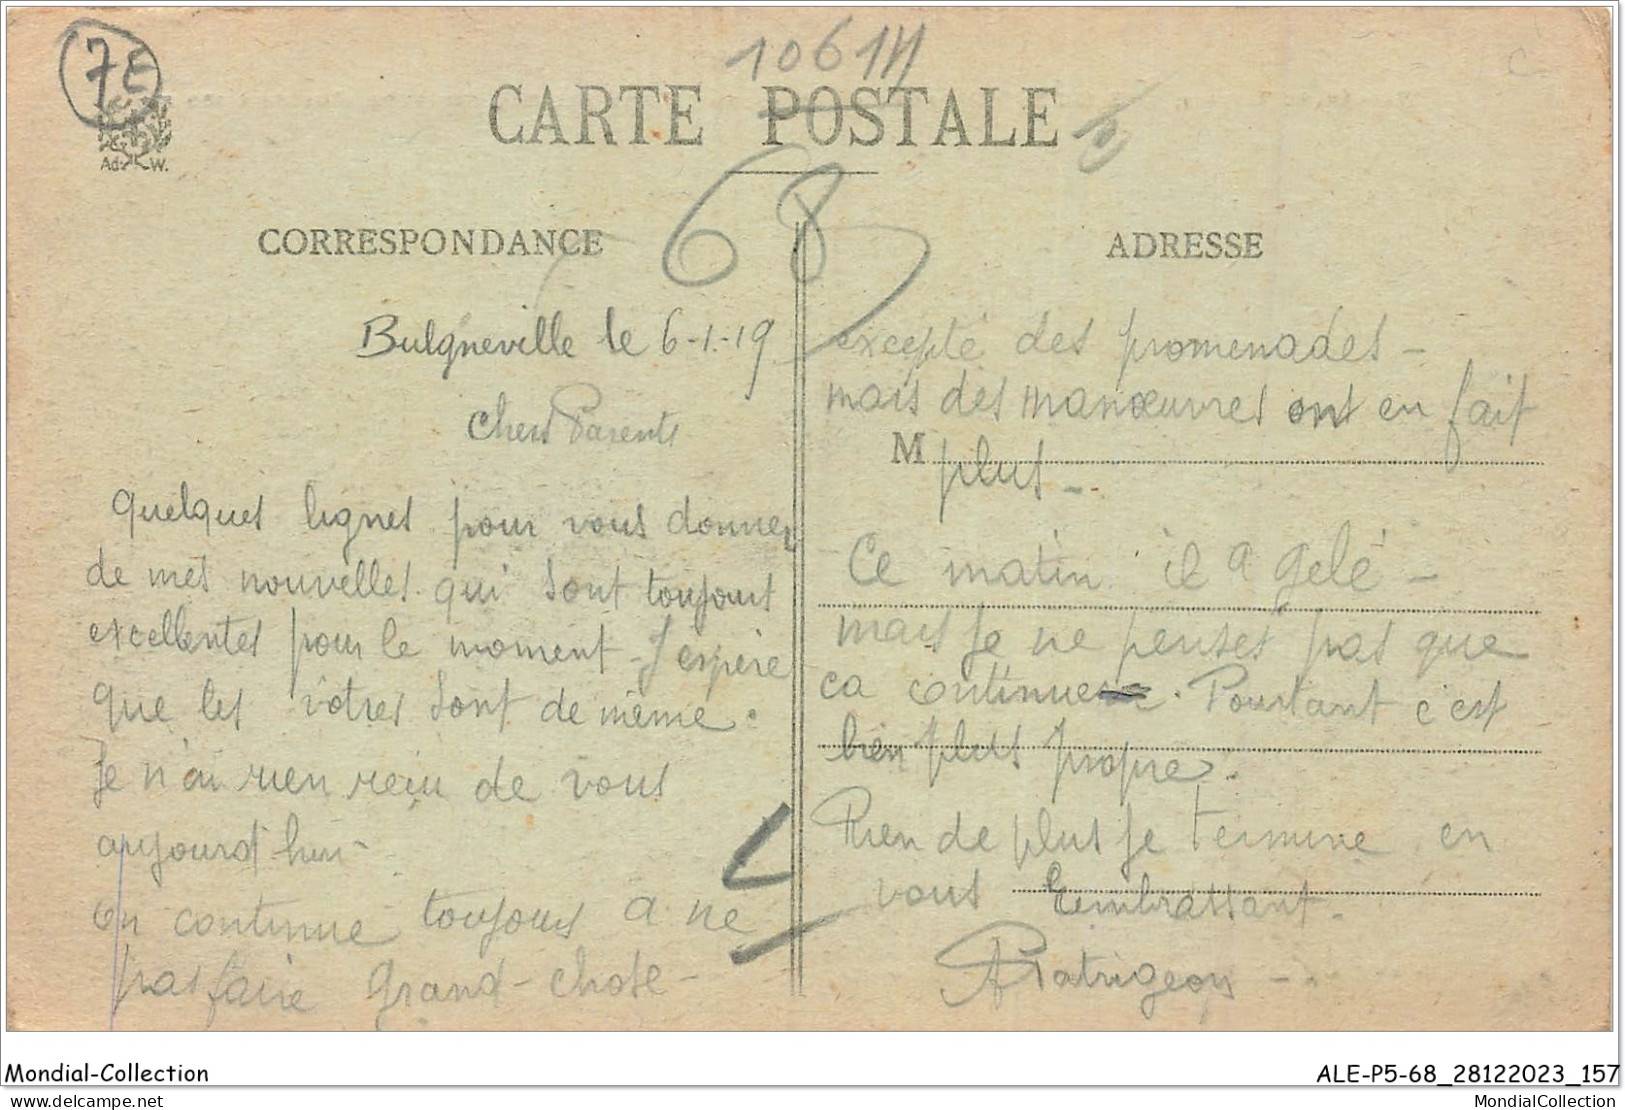 7E
10614
CARTE POSTALE
Ad. W.
68
CORRESPONDANCE
ADRESSE
Bulgneville le 6-1-19
Chers Parents
Quelques lignes pour vous donner
de mes nouvelles qui sont toujours
excellentes pour le moment - J'espère
que les vôtres sont de même.
Je n'ai rien reçu de vous
aujourd'hui -
on continue toujours a ne
pas faire grand-chose -
excepté des promenades -
mais des manœuvres ont en fait
M
plus -
Ce matin il a gelé -
mais je ne penses pas que
ca continue. Pourtant c'est
bien plus propre.
Rien de plus je termine en
vous embrassant.
A Patrigeon -
Mondial-Collection
ALE-P5-68_28122023_157
mondialcollection.net
MondialCollection